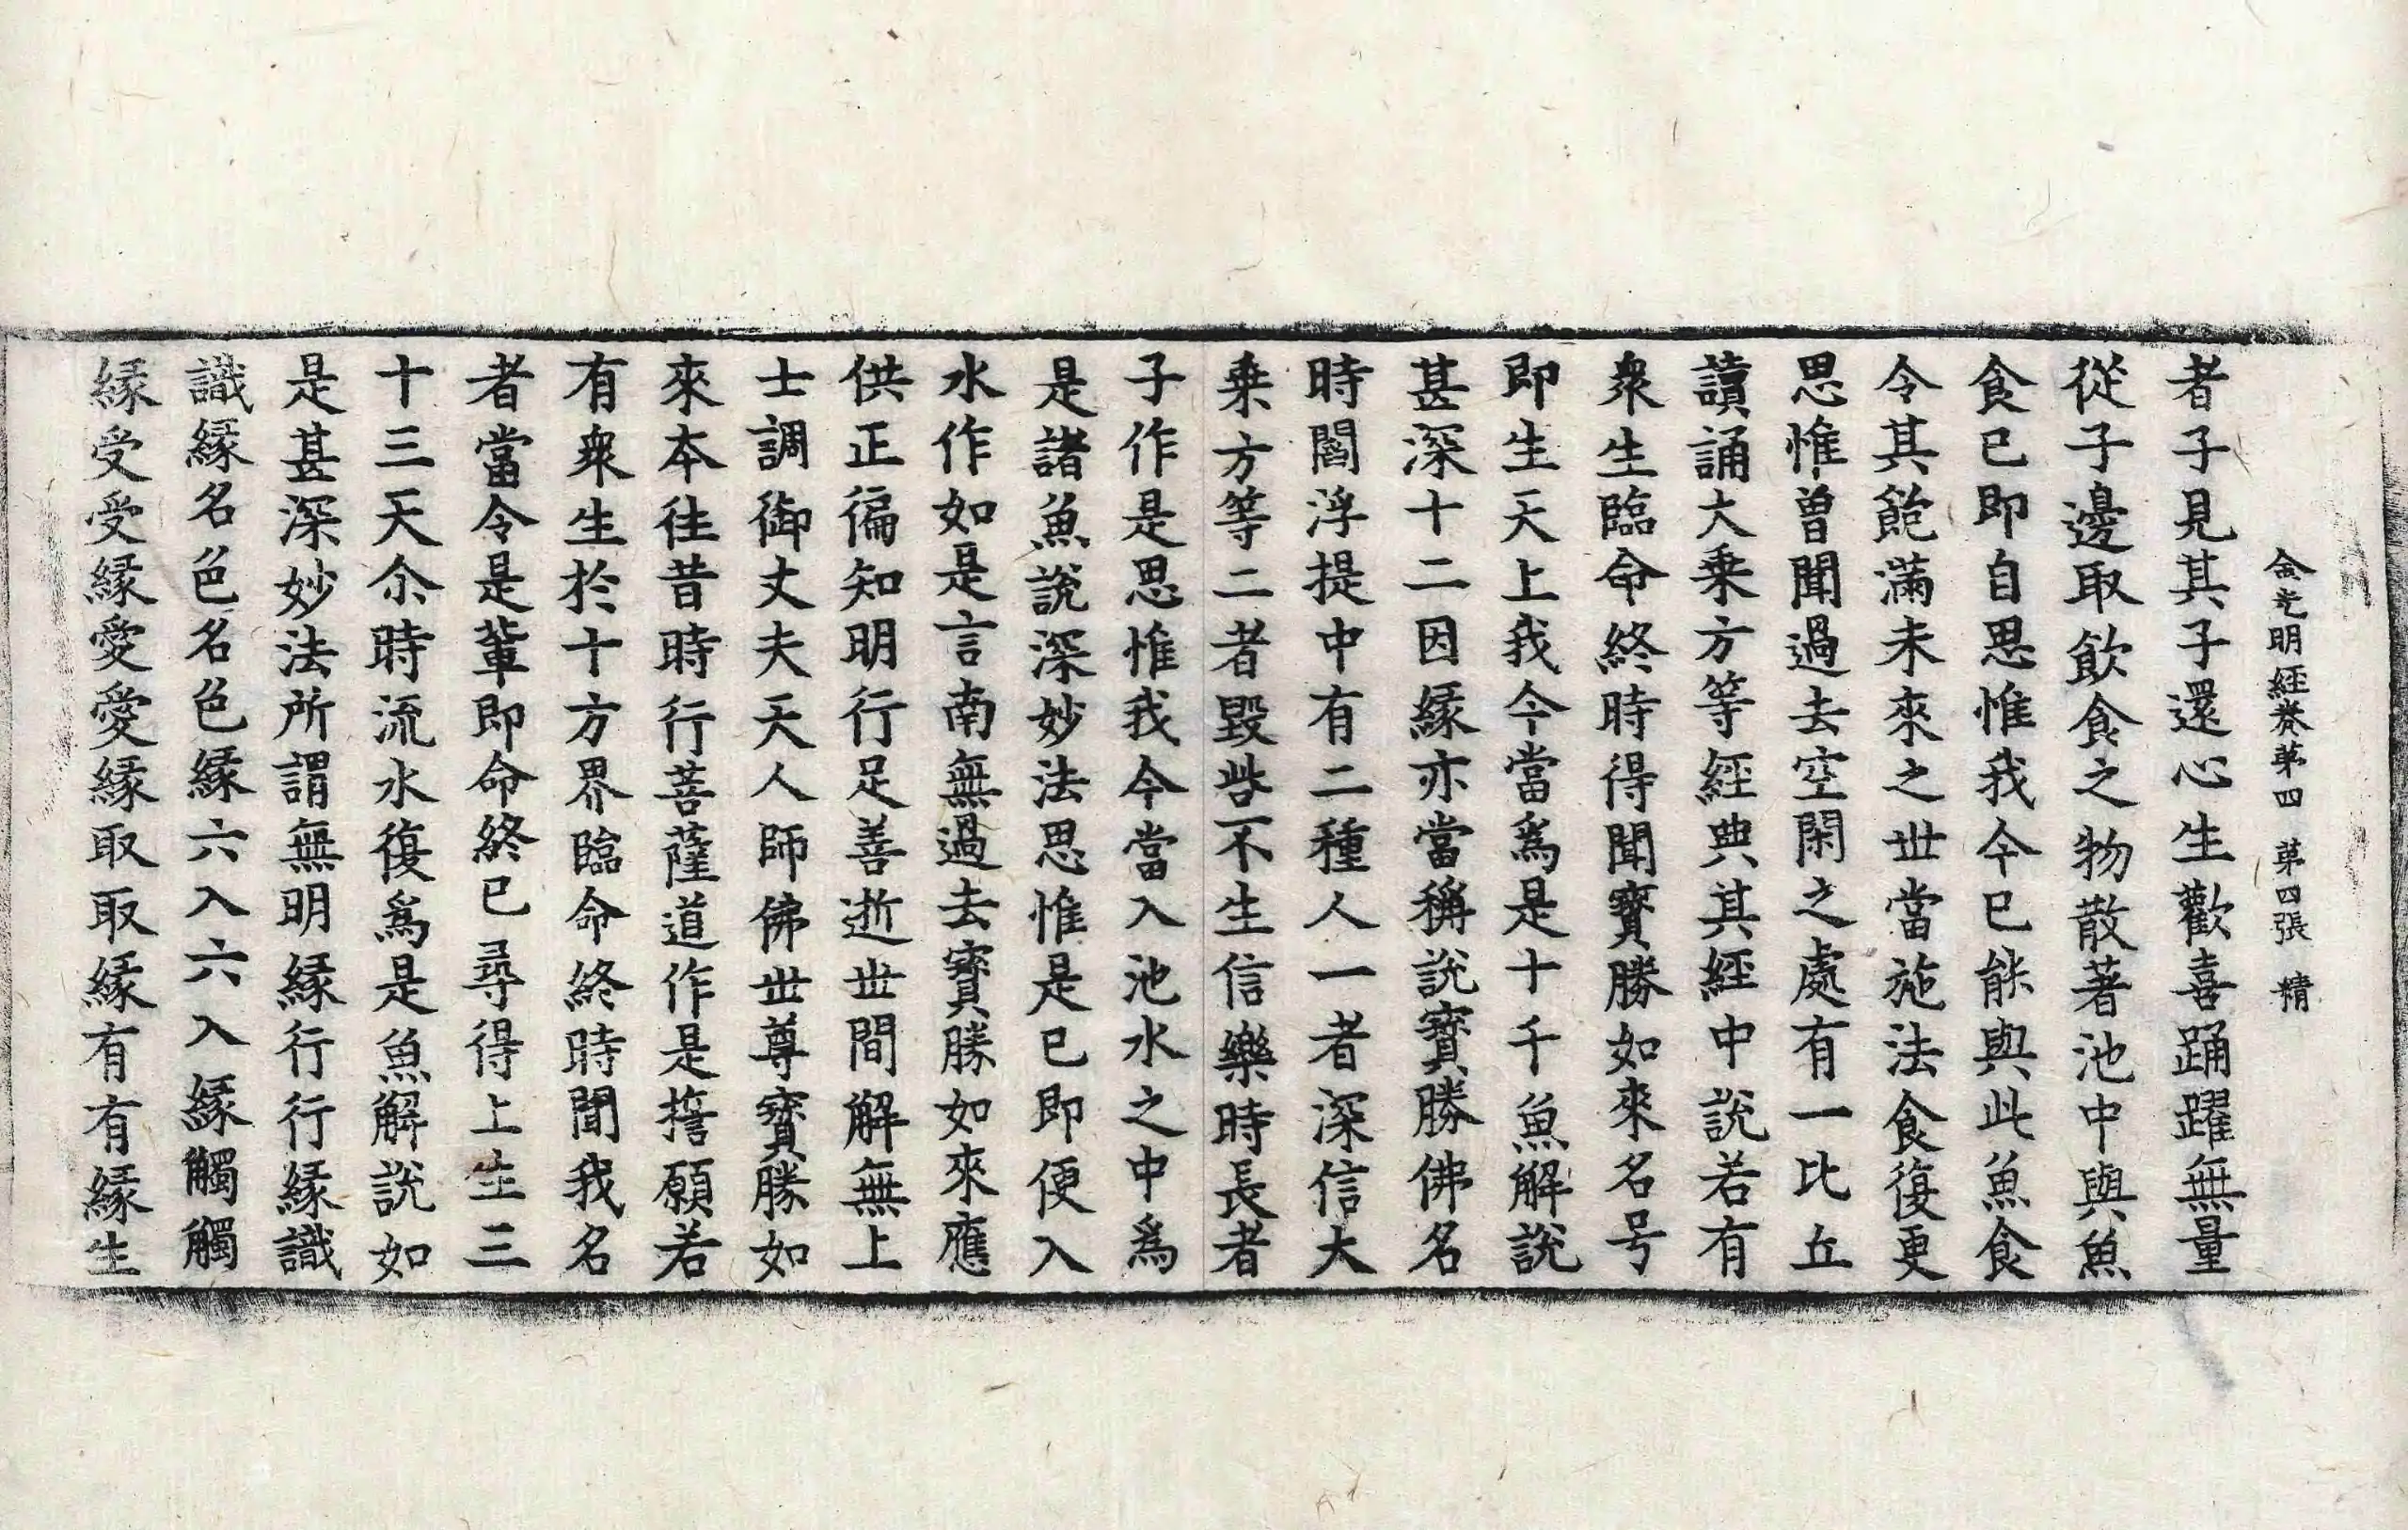 金光明經卷第四 第四張 精
者子見其子還心生歡喜踊躍無量
從子邊取飲食之物散著池中與魚
食已即自思惟我今已能與此魚食
令其飽滿未來之世當施法食復更
思惟曾聞過去空閑之處有一比丘
讀誦大乘方等經典其經中說若有
衆生臨命終時得聞寶勝如來名号
即生天上我今當爲是十千魚解說
甚深十二因緣亦當稱說寶勝佛名
時閻浮提中有二種人一者深信大
乘方等二者毀呰不生信樂時長者
子作是思惟我今當入池水之中爲
是諸魚說深妙法思惟是已即便入
水作如是言南無過去寶勝如來應
供正徧知明行足善逝世間解無上
士調御丈夫天人師佛世尊寶勝如
來本往昔時行菩薩道作是誓願若
有衆生於十方界臨命終時聞我名
者當令是輩即命終已尋得上生三
十三天尒時流水復爲是魚解說如
是甚深妙法所謂無明緣行行緣識
識緣名色名色緣六入六入緣觸觸
緣受受緣愛愛緣取取緣有有緣生